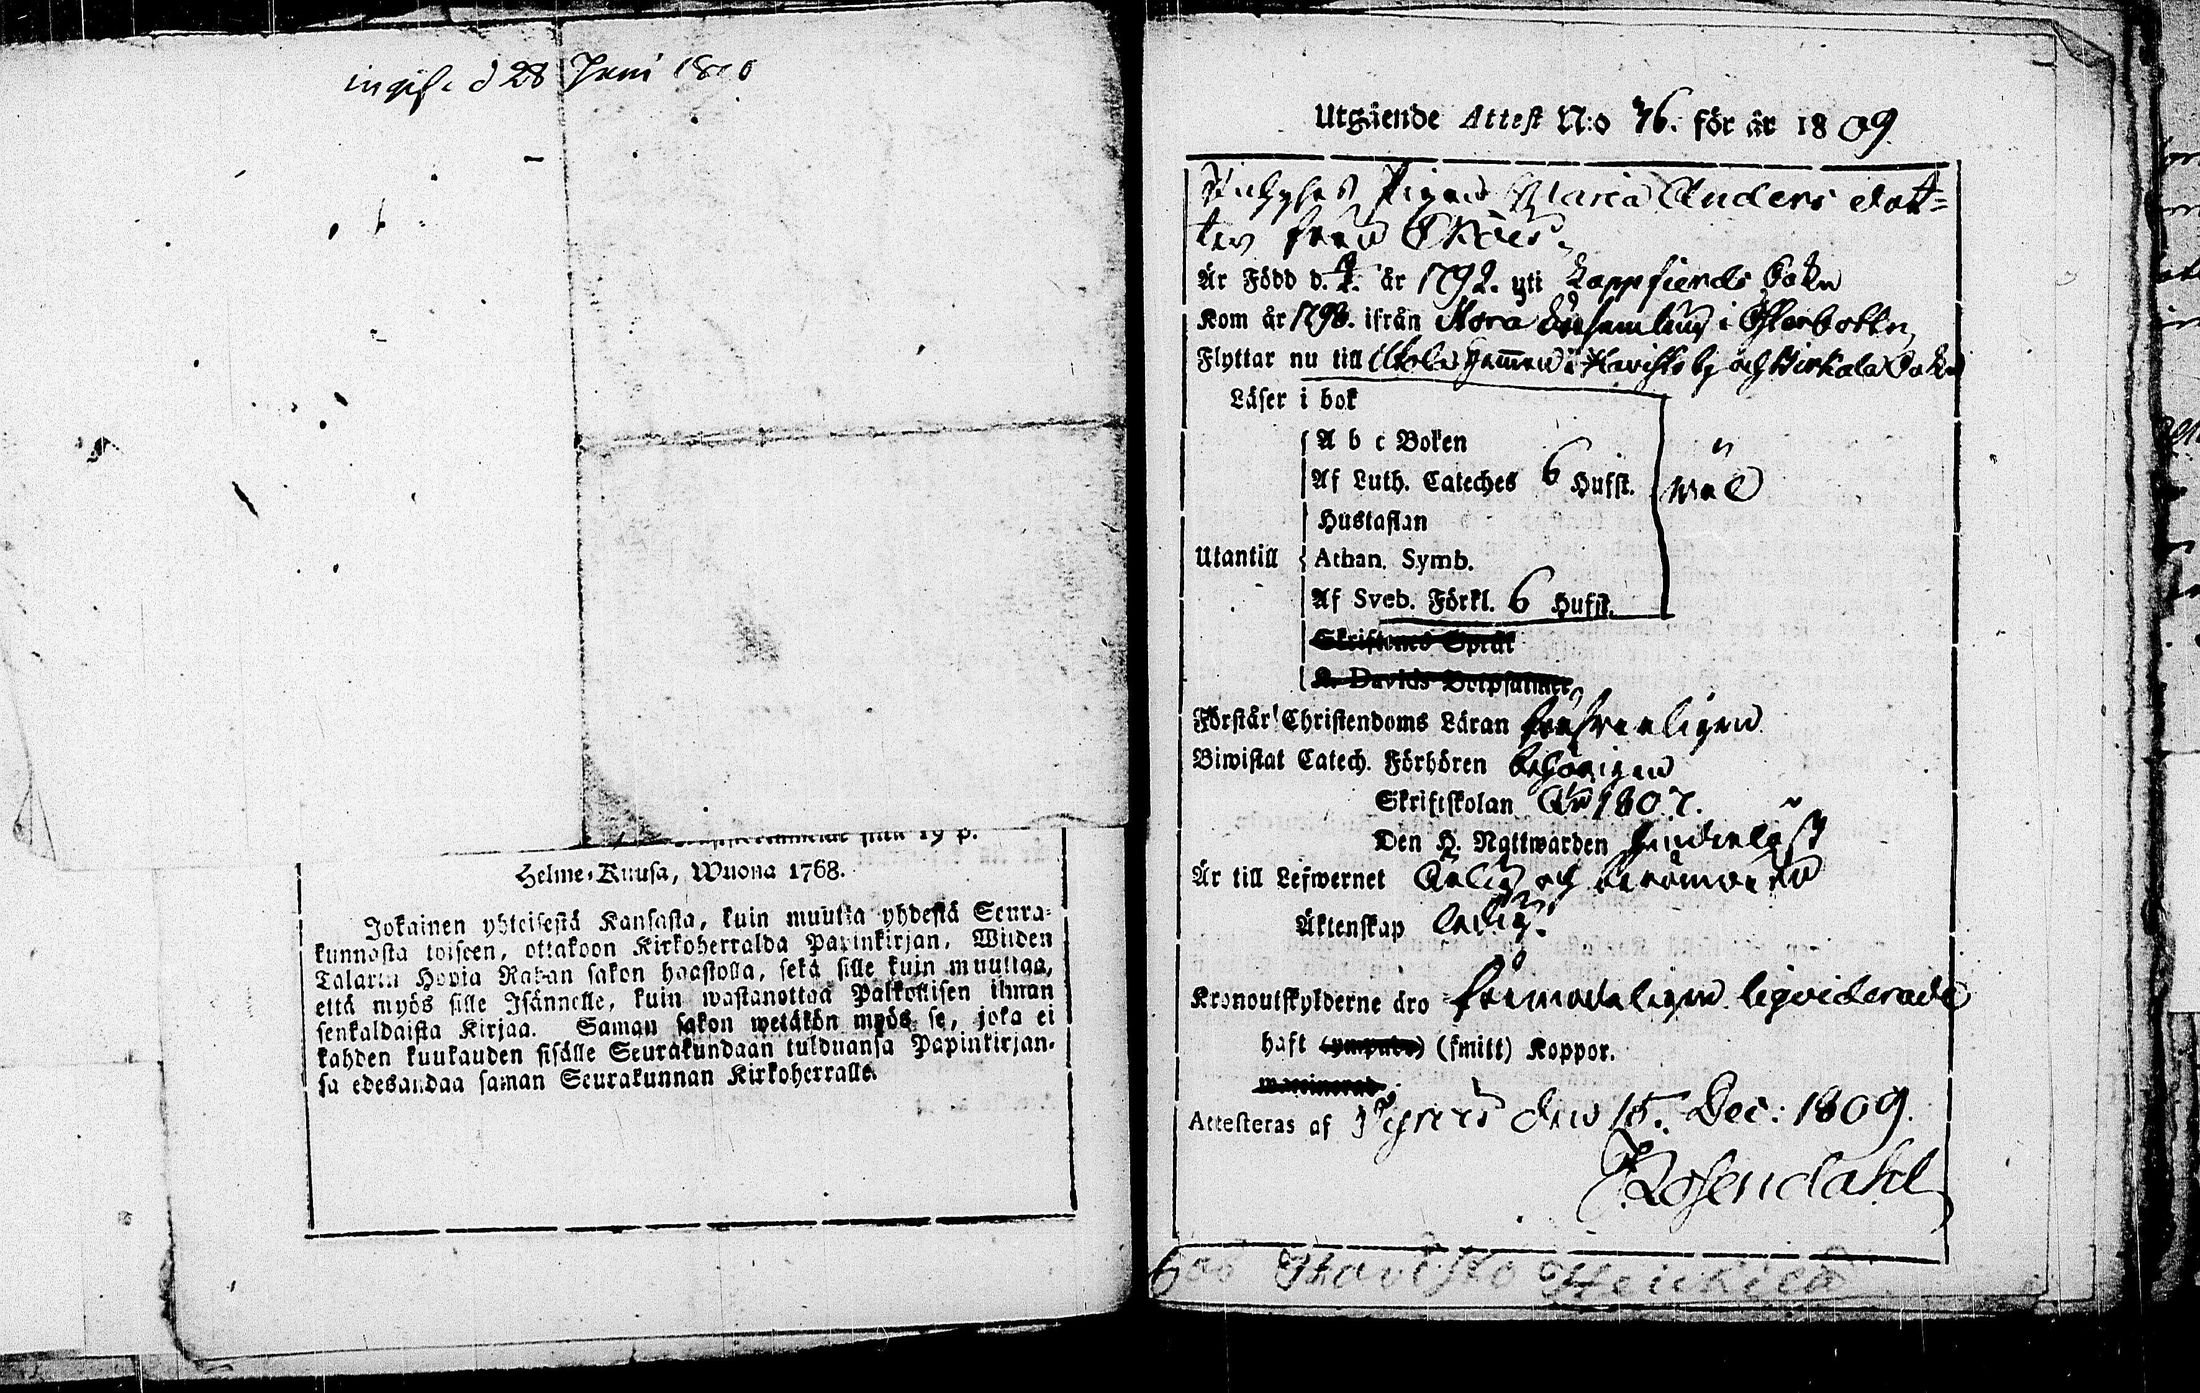 d 28 Juni 1810
19 p.
Helme-Kuusa, Wuona 1768.
Jokainen yhteisestä Kansasta, kuin muutta yhdestä Seura-
kunnasta toiseen, ottakoon Kirkoherralda Papinkirjan, Wiiden
Talarin Hopia Rahan sakon haastolla, sekä sille kuin muuttaa,
että myös sille Isännelle, kuin wastanottaa Palkollisen ilman
senkaldaista Kirjaa. Saman sakon wetäkön myös se, joka ei
kahden kuukauden sisälle Seurakundaan tulduansa Papinkirjan-
sa edesandaa saman Seurakunnan Kirkoherralle.
Utgående Attest N:o 76. för år 1809.
Pigan Maria Anders dot-
ter från
Är Född d. år 1792. uti Lappfierds Sokn
Kom år 1798. ifrån Stora i Österbotten,
Flyttar nu till i och Birkala Sokn
Läser i bok
A b c Boken
Af Luth. Cateches 6 Hufst. wäl
Hustaflan
Utantill Athan. Symb.
Af Sveb. Förkl. 6 Hufst.
Skriftenes Språk
K. Davids Botpsalmer
Förstår Christendoms Läran försvarligen
Biwistat Catech. Förhören behörigen
Skriftskolan År 1807.
Den H. Nattwarden hinderlöst
Är till Lefwernet ärlig och berömd
Äktenskap ledig.
Kronoutskylderne äro liqviderade
haft (ympade) (smitt) Koppor.
waccinerad
Attesteras af den 15. Dec: 1809.
Rosendahl
600 Heickilä